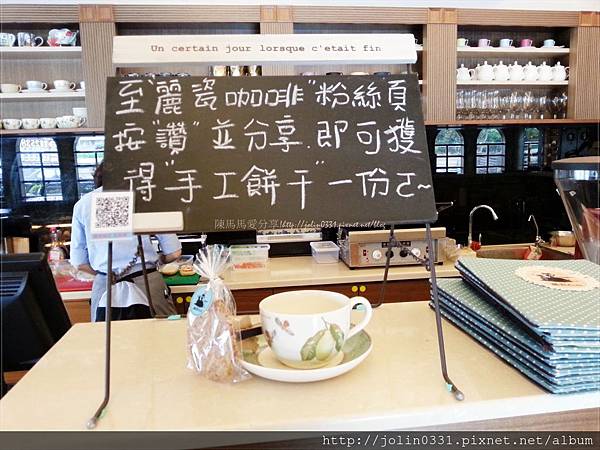 Un certain jour lorsque c'etait fin
至"麗瓷咖啡"粉絲頁
按"讚"並分享.即可獲
得"手工餅干"一份ㄛ~
陳馬馬愛分享(http://jolin0331.pixnet.net/blog)
http://jolin0331.pixnet.net/album